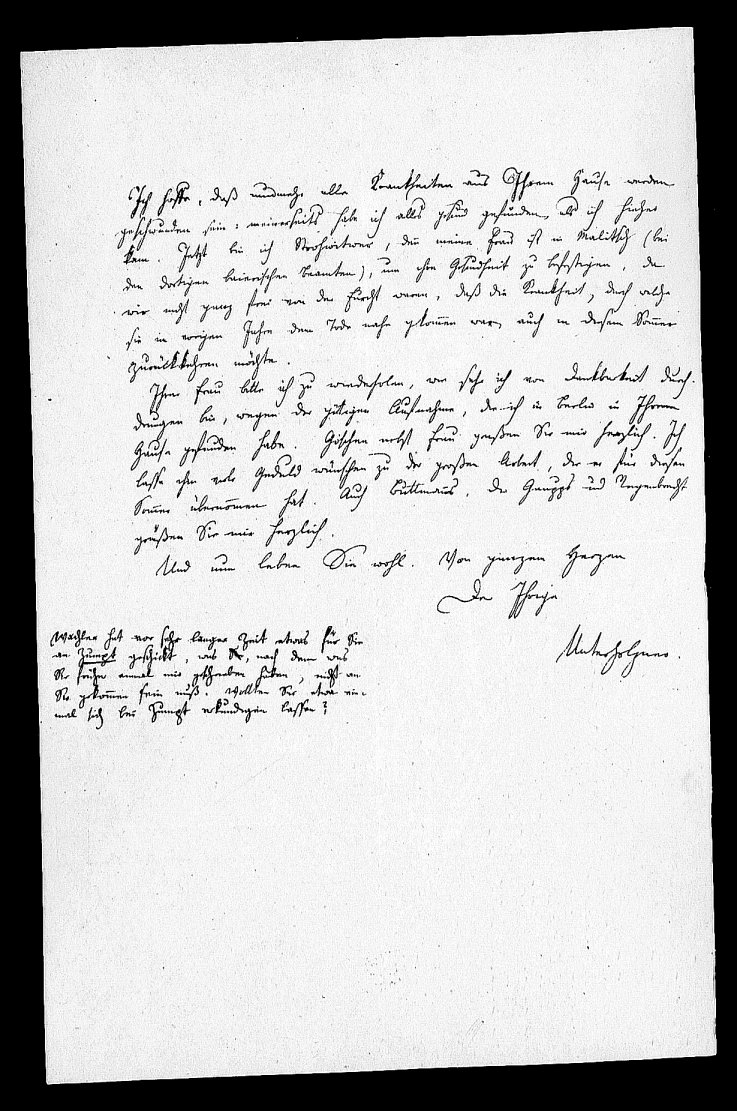 Ich hoffe, daß nunmehr alle Krankheiten aus Ihrem Hause werden
geschwunden sein: meinerseits habe ich alles gesund gefunden, als ich hieher
kam. Jetzt bin ich Strohwitwer, den̅ meine Frau ist in Malitsch (bei
den dortigen baierischen Beamten), um ihre Gesundheit zu befestigen, da
wir nicht ganz frei von der Furcht waren, daß die Krankheit, durch welche
sie im vorigen Jahre dem Tode nahe gekom̅en war, auch in diesem Som̅er
zurückkehren möchte.
Ihrer Frau bitte ich zu wiederholen, wie sehr ich von Dankbarkeit durch-
drungen bin, wegen der gütigen Aufnahme, die ich in Berlin in Ihrem
Hause gefunden habe. Göschen nebst Frau grüßen Sie mir herzlich. Ich
lasse ihm viele Geduld wünschen zu der großen Arbeit, die er für diesen
Som̅er übernom̅en hat. Auch Buttman̅s, die Gaupps und Regenbrecht
grüßen Sie mir herzlich.
Und nun leben Sie wohl. Von ganzem Herzen
Der Ihrige
Unterholzner
Wachler hat vor sehr langer Zeit etwas für Sie
an Zumpt geschickt, was, nach dem was
Sie früher einmal mir geschrieben haben, nicht an
Sie gekom̅en sein muß. Wollten Sie etwa ein-
mal sich bei Zumpt erkundigen lassen?